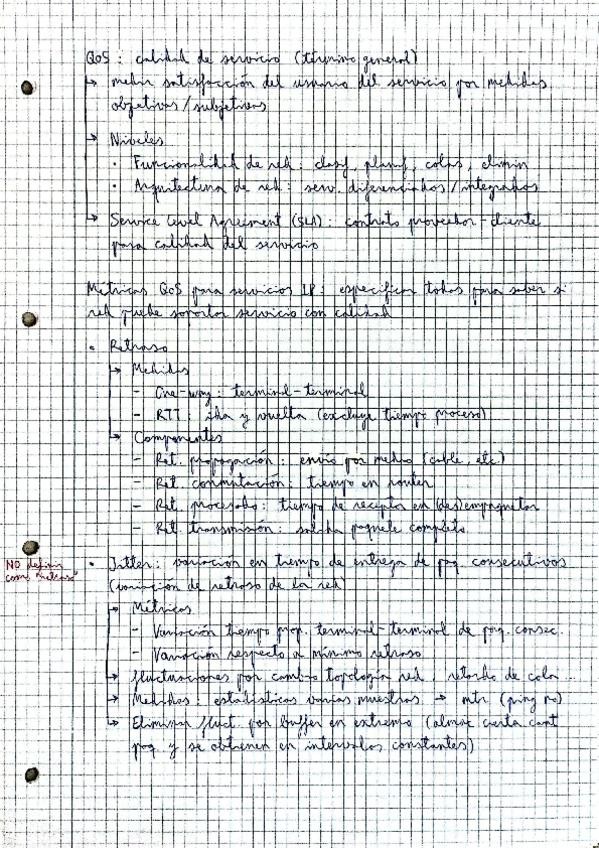 QoS : calidad de servicio (término general)
↳ medir satisfacción del usuario del servicio por medidas
objetivas / subjetivas
→ Niveles
· Funcionalidad de red : clasf, planif, colas, elimin
· Arquitectura de red : serv. diferenciados / integrados
↳ Service Level Agreement (SLA) : contrato proveedor - cliente
para calidad del servicio
Métricas QoS para servicios IP : especifican todas para saber si
red puede soportar servicio con calidad
• Retraso
→ Medidas
- One-way : terminal - terminal
- RTT : ida y vuelta (excluye tiempo proceso)
↳ Componentes
- Ret. propagación : envío por medio (cable, etc)
- Ret. conmutación : tiempo en router
- Ret. procesado : tiempo de receptor en (des)empaquetar
- Ret. transmisión : salida paquete completo
NO definir
como retraso
• Jitter : variación en tiempo de entrega de paq. consecutivos
(variación de retraso de la red)
→ Métricas
- Variación tiempo prop. terminal-terminal de paq. consec.
- Variación respecto a mínimo retraso
→ fluctuaciones por cambio topología red, retardo de cola ...
→ Medidas : estadísticas varias muestras → mtr (ping no)
↳ Eliminar fluct. por buffer en extremo (almac cierta cant
paq. y se obtienen en intervalos constantes)